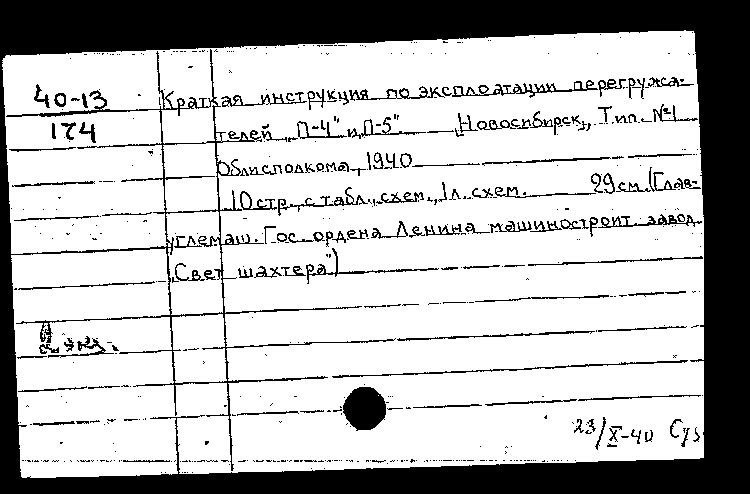 40-13
174
Краткая инструкция по эксплоатации перегружа-
телей „П-4" и „П-5" [Новосибирск], Тип. №1
Облисполкома, 1940
10 стр., с табл., схем., 1 л. схем. 29 см. (Глав-
углемаш. Гос. ордена Ленина машиностроит. завод.
„Свет шахтера")
2 экз.
23/X-40